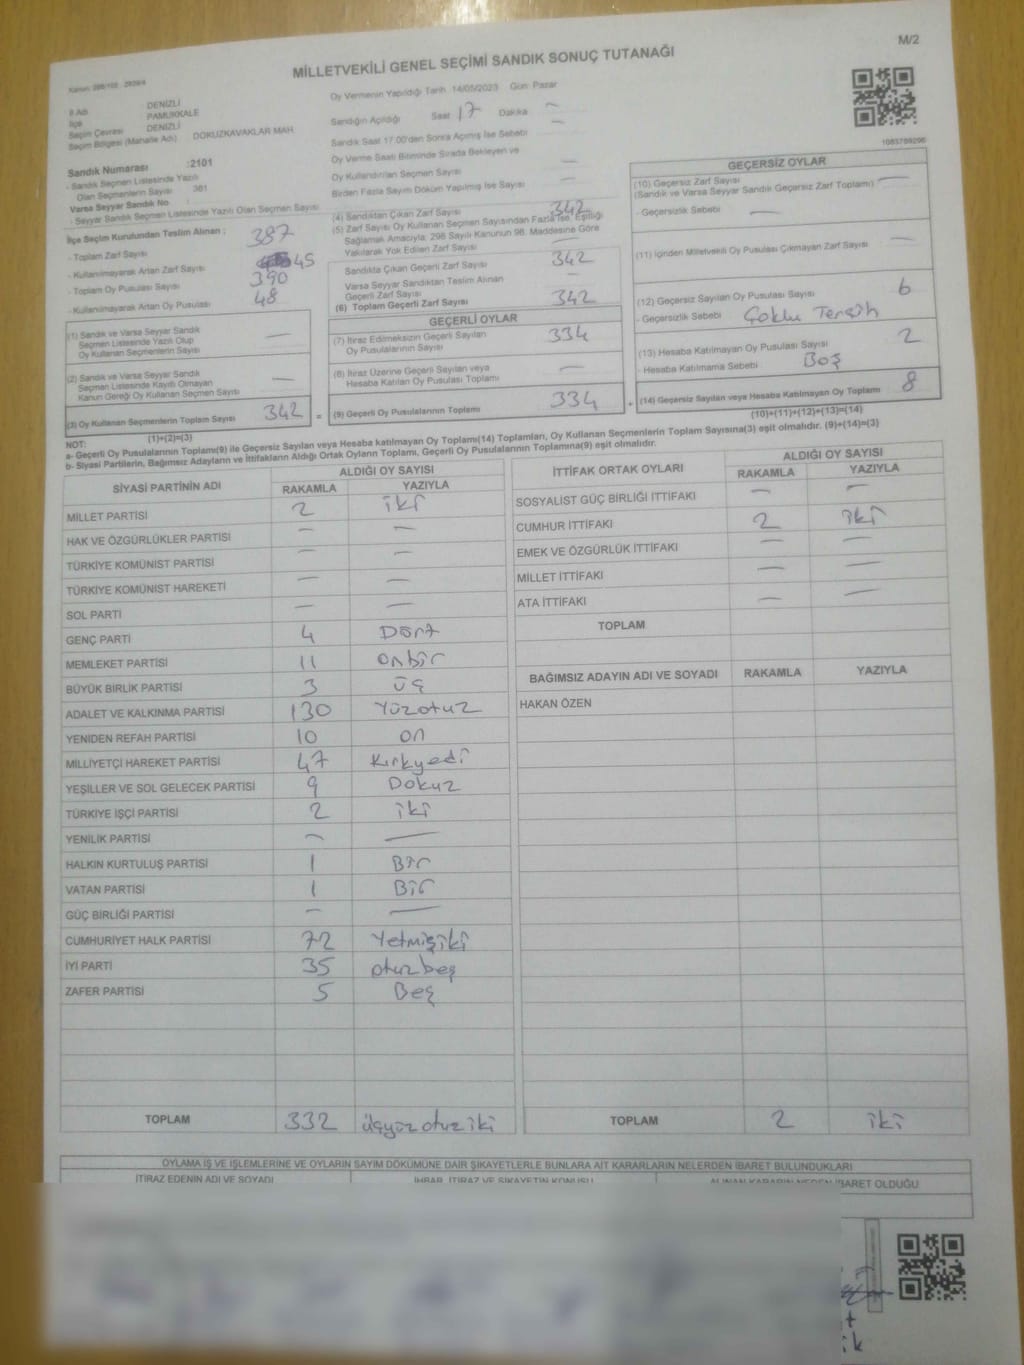 M/2
MİLLETVEKİLİ GENEL SEÇİMİ SANDIK SONUÇ TUTANAĞI
İl Adı : DENİZLİ
İlçe : PAMUKKALE
Seçim Çevresi : DENİZLİ
Seçim Bölgesi (Mahalle Adı) : DOKUZKAVAKLAR MAH.
Sandık Numarası :2101
- Sandık Seçmen Listesinde Yazılı
Olan Seçmenlerin Sayısı : 381
Varsa Seyyar Sandık No :
- Seyyar Sandık Seçmen Listesinde Yazılı Olan Seçmen Sayısı
İlçe Seçim Kurulundan Teslim Alınan ;
- Toplam Zarf Sayısı 387
- Kullanılmayarak Artan Zarf Sayısı 45
- Toplam Oy Pusulası Sayısı 390
- Kullanılmayarak Artan Oy Pusulası 48
(1) Sandık ve Varsa Seyyar Sandık
Seçmen Listesinde Yazılı Olup
Oy Kullanan Seçmenlerin Sayısı —
(2) Sandık ve Varsa Seyyar Sandık
Seçmen Listesinde Kayıtlı Olmayan
Kanun Gereği Oy Kullanan Seçmen Sayısı —
(3) Oy Kullanan Seçmenlerin Toplam Sayısı 342
(1)+(2)=(3)
Oy Vermenin Yapıldığı Tarih: 14/05/2023 Gün: Pazar
Sandığın Açıldığı Saat 17 Dakika —
Sandık Saat 17:00'den Sonra Açılmış İse Sebebi —
Oy Verme Saati Bitiminde Sırada Bekleyen ve
Oy Kullandırılan Seçmen Sayısı —
Birden Fazla Sayım Döküm Yapılmış İse Sayısı —
(4) Sandıktan Çıkan Zarf Sayısı 342
(5) Zarf Sayısı Oy Kullanan Seçmen Sayısından Fazla İse, Eşitliği
Sağlamak Amacıyla; 298 Sayılı Kanunun 98. Maddesine Göre
Yakılarak Yok Edilen Zarf Sayısı —
Sandıkta Çıkan Geçerli Zarf Sayısı 342
Varsa Seyyar Sandıktan Teslim Alınan
Geçerli Zarf Sayısı —
(6) Toplam Geçerli Zarf Sayısı 342
GEÇERLİ OYLAR
(7) İtiraz Edilmeksizin Geçerli Sayılan
Oy Pusulalarının Sayısı 334
(8) İtiraz Üzerine Geçerli Sayılan veya
Hesaba Katılan Oy Pusulası Toplamı —
(9) Geçerli Oy Pusulalarının Toplamı 334
1083789296
GEÇERSİZ OYLAR
(10) Geçersiz Zarf Sayısı —
(Sandık ve Varsa Seyyar Sandık Geçersiz Zarf Toplamı)
- Geçersizlik Sebebi —
(11) İçinden Milletvekili Oy Pusulası Çıkmayan Zarf Sayısı —
(12) Geçersiz Sayılan Oy Pusulası Sayısı 6
- Geçersizlik Sebebi Çoklu Tercih
(13) Hesaba Katılmayan Oy Pusulası Sayısı 2
- Hesaba Katılmama Sebebi Boş
(14) Geçersiz Sayılan veya Hesaba Katılmayan Oy Toplamı 8
(10)+(11)+(12)+(13)=(14)
NOT:
a- Geçerli Oy Pusulalarının Toplamı(9) ile Geçersiz Sayılan veya Hesaba katılmayan Oy Toplamı(14) Toplamları, Oy Kullanan Seçmenlerin Toplam Sayısına(3) eşit olmalıdır. (9)+(14)=(3)
b- Siyasi Partilerin, Bağımsız Adayların ve İttifakların Aldığı Ortak Oyların Toplamı, Geçerli Oy Pusulalarının Toplamına(9) eşit olmalıdır.
SİYASİ PARTİNİN ADI ALDIĞI OY SAYISI
RAKAMLA YAZIYLA
MİLLET PARTİSİ 2 iki
HAK VE ÖZGÜRLÜKLER PARTİSİ — —
TÜRKİYE KOMÜNİST PARTİSİ — —
TÜRKİYE KOMÜNİST HAREKETİ — —
SOL PARTİ — —
GENÇ PARTİ 4 Dört
MEMLEKET PARTİSİ 11 onbir
BÜYÜK BİRLİK PARTİSİ 3 üç
ADALET VE KALKINMA PARTİSİ 130 Yüzotuz
YENİDEN REFAH PARTİSİ 10 on
MİLLİYETÇİ HAREKET PARTİSİ 47 Kırkyedi
YEŞİLLER VE SOL GELECEK PARTİSİ 9 Dokuz
TÜRKİYE İŞÇİ PARTİSİ 2 iki
YENİLİK PARTİSİ — —
HALKIN KURTULUŞ PARTİSİ 1 Bir
VATAN PARTİSİ 1 Bir
GÜÇ BİRLİĞİ PARTİSİ — —
CUMHURİYET HALK PARTİSİ 72 Yetmişiki
İYİ PARTİ 35 otuzbeş
ZAFER PARTİSİ 5 Beş
TOPLAM 332 üçyüzotuziki
İTTİFAK ORTAK OYLARI ALDIĞI OY SAYISI
RAKAMLA YAZIYLA
SOSYALİST GÜÇ BİRLİĞİ İTTİFAKI — —
CUMHUR İTTİFAKI 2 iki
EMEK VE ÖZGÜRLÜK İTTİFAKI — —
MİLLET İTTİFAKI — —
ATA İTTİFAKI — —
TOPLAM
BAĞIMSIZ ADAYIN ADI VE SOYADI RAKAMLA YAZIYLA
HAKAN ÖZEN
TOPLAM 2 iki
OYLAMA İŞ VE İŞLEMLERİNE VE OYLARIN SAYIM DÖKÜMÜNE DAİR ŞİKAYETLERLE BUNLARA AİT KARARLARIN NELERDEN İBARET BULUNDUKLARI
İTİRAZ EDENİN ADI VE SOYADI İHBAR, İTİRAZ VE ŞİKAYETİN KONUSU ALINAN KARARIN NEDEN İBARET OLDUĞU